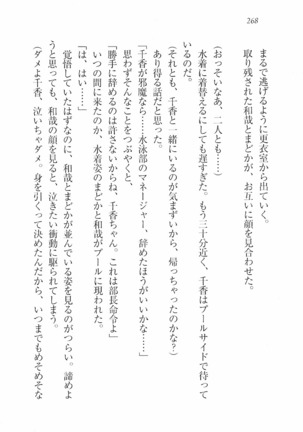 268
まるで逃げるように更衣室から出ていく。
取り残された和哉とまどかが、お互いに顔を見合わせた。
（おっそいなあ、二人とも……）
水着に着替えるにしても遅すぎた。もう三十分近く、千香はプールサイドで待って
いるのだ。
（それとも、千香と一緒にいるのが気まずいから、帰っちゃったのかな？）
あり得る話だと思った。
「千香が邪魔なら……水泳部のマネージャー、辞めたほうがいいかな……」
思わずそんなことを呟いてしまう。
「勝手に辞めるのは許さないからね、千香ちゃん。これは部長命令よ」
いつの間に来たのか、水着姿のまどかと和哉がプールに現われた。
「は、はい……」
覚悟していたはずなのに、和哉とまどかが並んでいる姿を見るのがつらい。諦めよ
うと思っても、和哉の顔を見ると、泣きたい衝動に駆られてしまう。
（ダメよ千香、泣いちゃダメ。身を引くって決めたんだから、いつまでもめそめそな